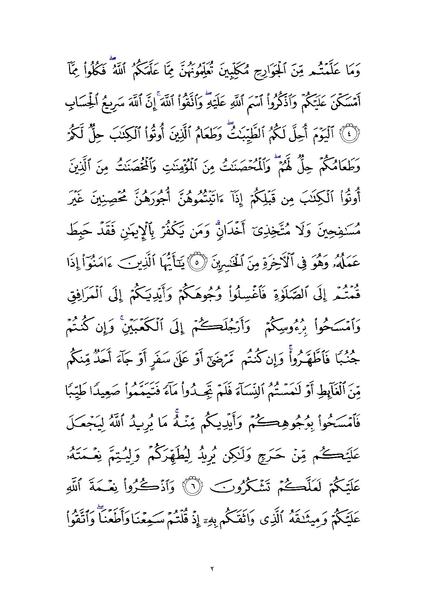 وَمَا عَلَّمْتُم مِّنَ ٱلْجَوَارِحِ مُكَلِّبِينَ تُعَلِّمُونَهُنَّ مِمَّا عَلَّمَكُمُ ٱللَّهُ ۖ فَكُلُوا۟ مِمَّآ
أَمْسَكْنَ عَلَيْكُمْ وَٱذْكُرُوا۟ ٱسْمَ ٱللَّهِ عَلَيْهِ ۖ وَٱتَّقُوا۟ ٱللَّهَ ۚ إِنَّ ٱللَّهَ سَرِيعُ ٱلْحِسَابِ
﴿٤﴾ ٱلْيَوْمَ أُحِلَّ لَكُمُ ٱلطَّيِّبَـٰتُ ۖ وَطَعَامُ ٱلَّذِينَ أُوتُوا۟ ٱلْكِتَـٰبَ حِلٌّ لَّكُمْ
وَطَعَامُكُمْ حِلٌّ لَّهُمْ ۖ وَٱلْمُحْصَنَـٰتُ مِنَ ٱلْمُؤْمِنَـٰتِ وَٱلْمُحْصَنَـٰتُ مِنَ ٱلَّذِينَ
أُوتُوا۟ ٱلْكِتَـٰبَ مِن قَبْلِكُمْ إِذَآ ءَاتَيْتُمُوهُنَّ أُجُورَهُنَّ مُحْصِنِينَ غَيْرَ
مُسَـٰفِحِينَ وَلَا مُتَّخِذِىٓ أَخْدَانٍ ۗ وَمَن يَكْفُرْ بِٱلْإِيمَـٰنِ فَقَدْ حَبِطَ
عَمَلُهُۥ وَهُوَ فِى ٱلْـَٔاخِرَةِ مِنَ ٱلْخَـٰسِرِينَ ﴿٥﴾ يَـٰٓأَيُّهَا ٱلَّذِينَ ءَامَنُوٓا۟ إِذَا
قُمْتُمْ إِلَى ٱلصَّلَوٰةِ فَٱغْسِلُوا۟ وُجُوهَكُمْ وَأَيْدِيَكُمْ إِلَى ٱلْمَرَافِقِ
وَٱمْسَحُوا۟ بِرُءُوسِكُمْ وَأَرْجُلَكُمْ إِلَى ٱلْكَعْبَيْنِ ۚ وَإِن كُنتُمْ
جُنُبًا فَٱطَّهَّرُوا۟ ۚ وَإِن كُنتُم مَّرْضَىٰٓ أَوْ عَلَىٰ سَفَرٍ أَوْ جَآءَ أَحَدٌ مِّنكُم
مِّنَ ٱلْغَآئِطِ أَوْ لَـٰمَسْتُمُ ٱلنِّسَآءَ فَلَمْ تَجِدُوا۟ مَآءً فَتَيَمَّمُوا۟ صَعِيدًا طَيِّبًا
فَٱمْسَحُوا۟ بِوُجُوهِكُمْ وَأَيْدِيكُم مِّنْهُ ۚ مَا يُرِيدُ ٱللَّهُ لِيَجْعَلَ
عَلَيْكُم مِّنْ حَرَجٍ وَلَـٰكِن يُرِيدُ لِيُطَهِّرَكُمْ وَلِيُتِمَّ نِعْمَتَهُۥ
عَلَيْكُمْ لَعَلَّكُمْ تَشْكُرُونَ ﴿٦﴾ وَٱذْكُرُوا۟ نِعْمَةَ ٱللَّهِ
عَلَيْكُمْ وَمِيثَـٰقَهُ ٱلَّذِى وَاثَقَكُم بِهِۦٓ إِذْ قُلْتُمْ سَمِعْنَا وَأَطَعْنَا ۖ وَٱتَّقُوا۟
٢